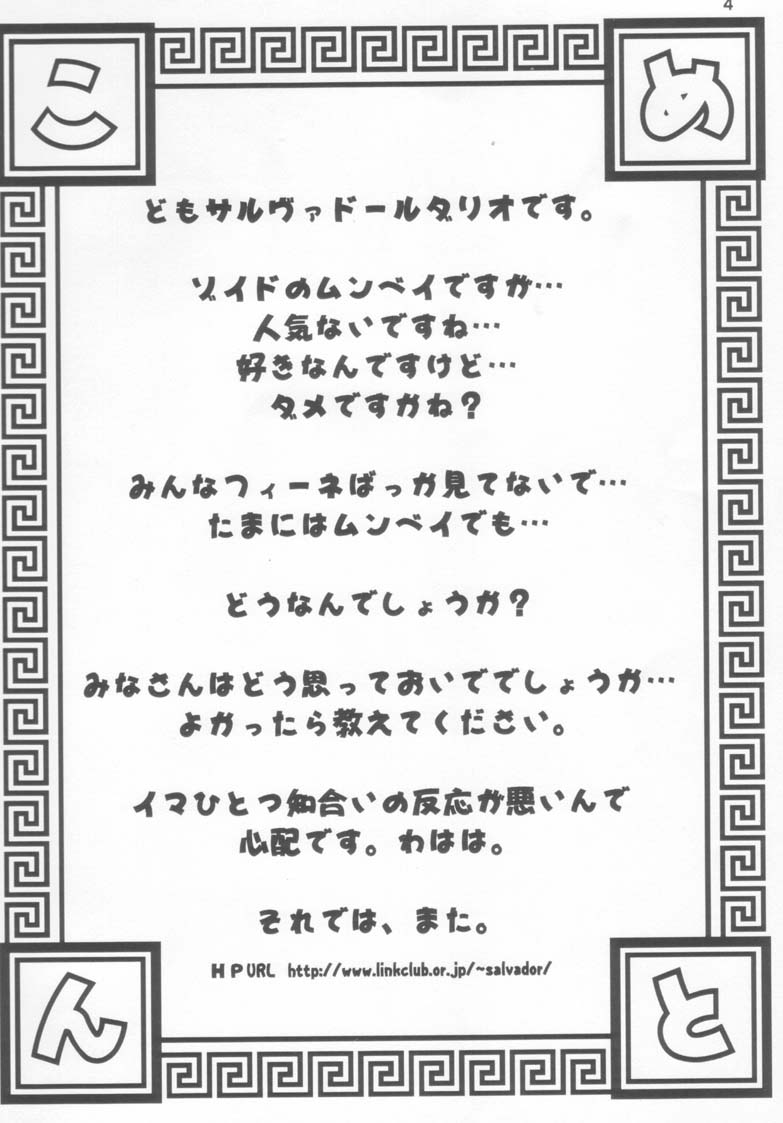 4
こ め
どもサルヴァドールダリオです。
ゾイドのムンベイですが…
人気ないですね…
好きなんですけど…
ダメですかね？
みんなフィーネばっか見てないで…
たまにはムンベイでも…
どうなんでしょうか？
みなさんはどう思っておいででしょうか…
よかったら教えてください。
イマひとつ知合いの反応が悪いんで
心配です。わはは。
それでは、また。
ＨＰURL http://www.linkclub.or.jp/~salvador/
ん と